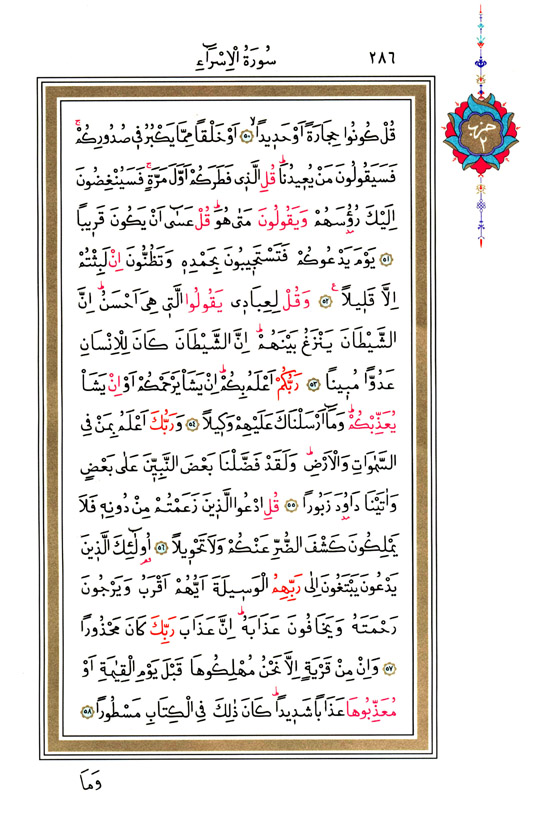 سُورَةُ الْاِسْرَٓاءِ ٢٨٦
حزب ٢
قُلْ كُونُوا حِجَارَةً اَوْ حَد۪يداًۙ ﴿٥٠﴾ اَوْ خَلْقاً مِمَّا يَكْبُرُ ف۪ي صُدُورِكُمْۚ
فَسَيَقُولُونَ مَنْ يُع۪يدُنَاۜ قُلِ الَّذ۪ي فَطَرَكُمْ اَوَّلَ مَرَّةٍۚ فَسَيُنْغِضُونَ
اِلَيْكَ رُؤُ۫سَهُمْ وَيَقُولُونَ مَتٰى هُوَۜ قُلْ عَسٰٓى اَنْ يَكُونَ قَر۪يباً
﴿٥١﴾ يَوْمَ يَدْعُوكُمْ فَتَسْتَج۪يبُونَ بِحَمْدِه۪ وَتَظُنُّونَ اِنْ لَبِثْتُمْ
اِلَّا قَل۪يلاً۟ ﴿٥٢﴾ وَقُلْ لِعِبَاد۪ي يَقُولُوا الَّت۪ي هِيَ اَحْسَنُۜ اِنَّ
الشَّيْطَانَ يَنْزَغُ بَيْنَهُمْۜ اِنَّ الشَّيْطَانَ كَانَ لِلْاِنْسَانِ
عَدُواًّ مُب۪يناً ﴿٥٣﴾ رَبُّكُمْ اَعْلَمُ بِكُمْۜ اِنْ يَشَأْ يَرْحَمْكُمْ اَوْ اِنْ يَشَأْ
يُعَذِّبْكُمْۜ وَمَٓا اَرْسَلْنَاكَ عَلَيْهِمْ وَك۪يلاً ﴿٥٤﴾ وَرَبُّكَ اَعْلَمُ بِمَنْ فِي
السَّمٰوَاتِ وَالْاَرْضِۜ وَلَقَدْ فَضَّلْنَا بَعْضَ النَّبِيّ۪نَ عَلٰى بَعْضٍ
وَاٰتَيْنَا دَاوُ۫دَ زَبُوراً ﴿٥٥﴾ قُلِ ادْعُوا الَّذ۪ينَ زَعَمْتُمْ مِنْ دُونِه۪ فَلَا
يَمْلِكُونَ كَشْفَ الضُّرِّ عَنْكُمْ وَلَا تَحْو۪يلاً ﴿٥٦﴾ اُو۬لٰٓئِكَ الَّذ۪ينَ
يَدْعُونَ يَبْتَغُونَ اِلٰى رَبِّهِمُ الْوَس۪يلَةَ اَيُّهُمْ اَقْرَبُ وَيَرْجُونَ
رَحْمَتَهُ وَيَخَافُونَ عَذَابَهُۜ اِنَّ عَذَابَ رَبِّكَ كَانَ مَحْذُوراً
﴿٥٧﴾ وَاِنْ مِنْ قَرْيَةٍ اِلَّا نَحْنُ مُهْلِكُوهَا قَبْلَ يَوْمِ الْقِيٰمَةِ اَوْ
مُعَذِّبُوهَا عَذَاباً شَد۪يداًۜ كَانَ ذٰلِكَ فِي الْكِتَابِ مَسْطُوراً ﴿٥٨﴾
وَمَا